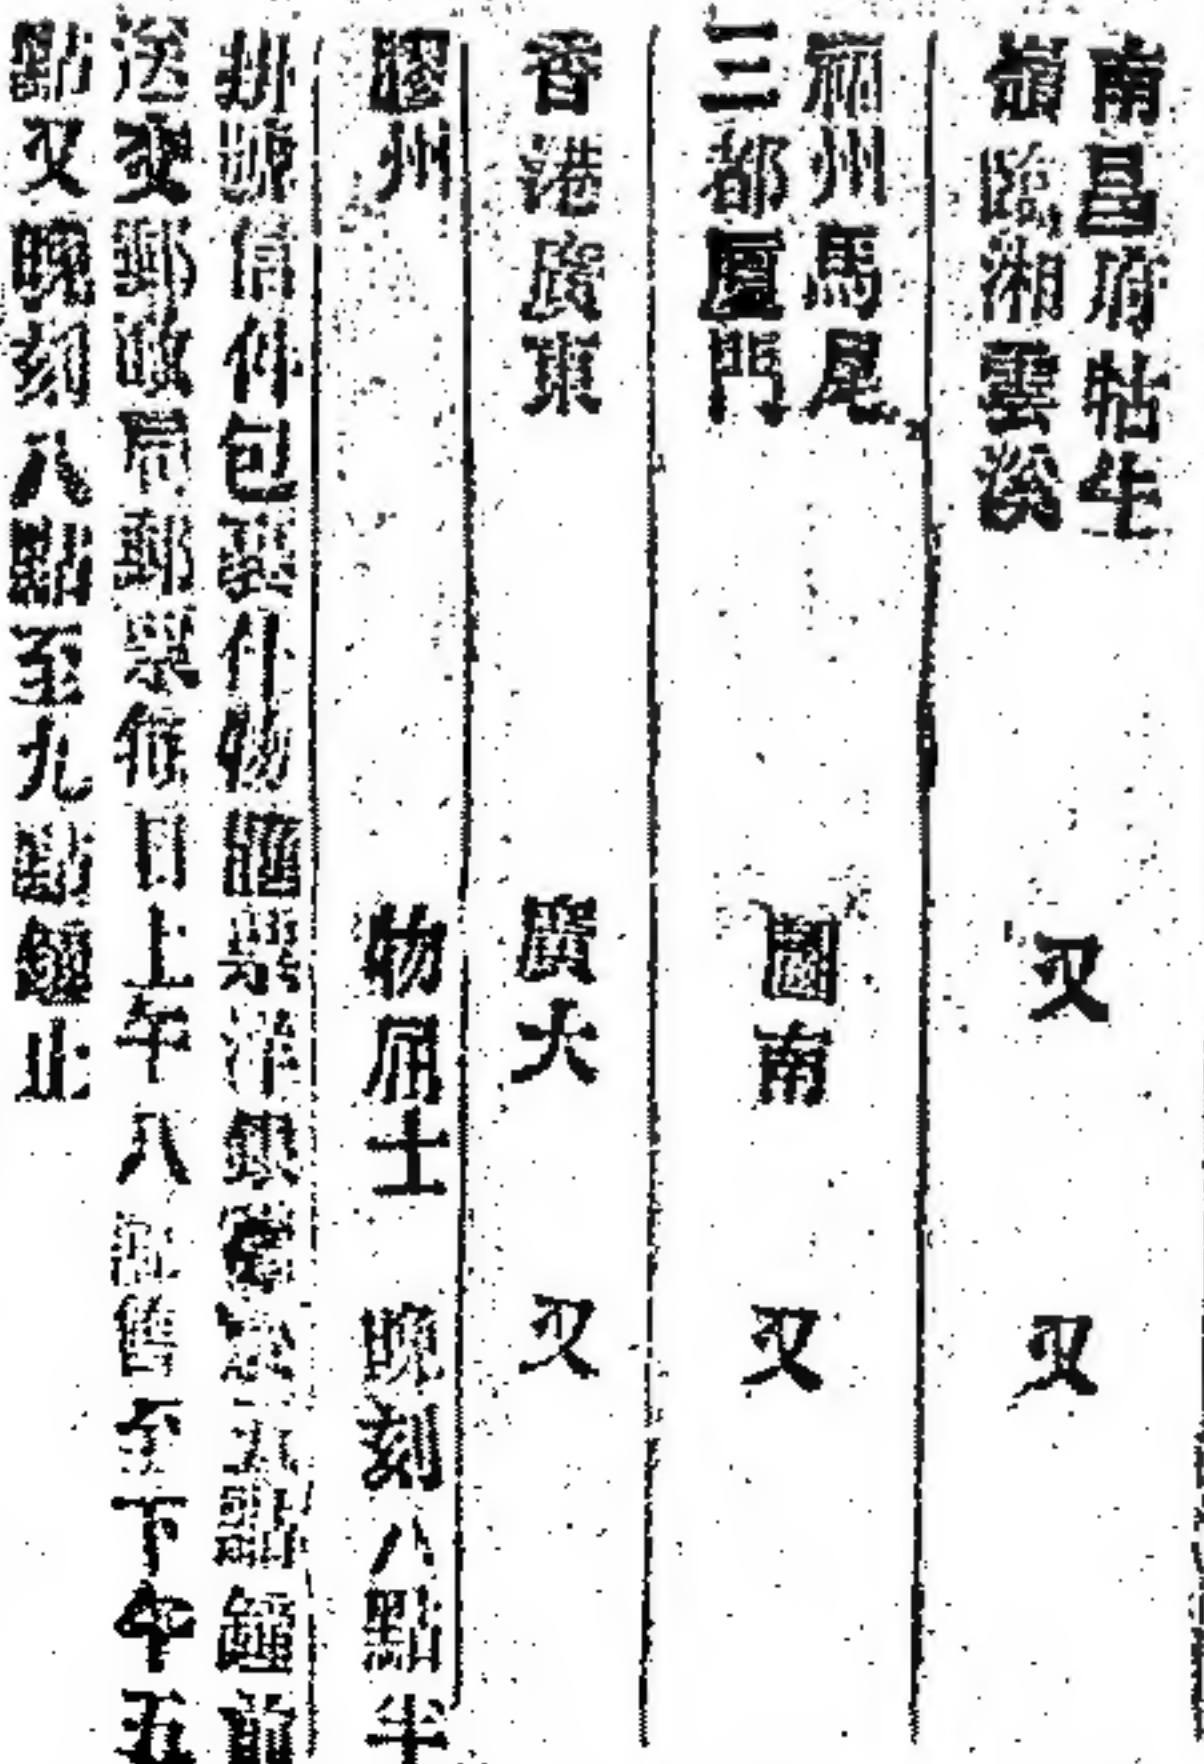 南昌府牯牛 又 又
嶺臨湘雲溪
福州馬尾 國南 又
三都厦門
香港廣東 廣大 又
膠州 物屈士 晚刻八點半
掛號信件包裹什物匯票洋銀 五點鐘前
送交郵政局郵票每日上午八點鐘至下午五
點又晚刻八點至九點鐘止